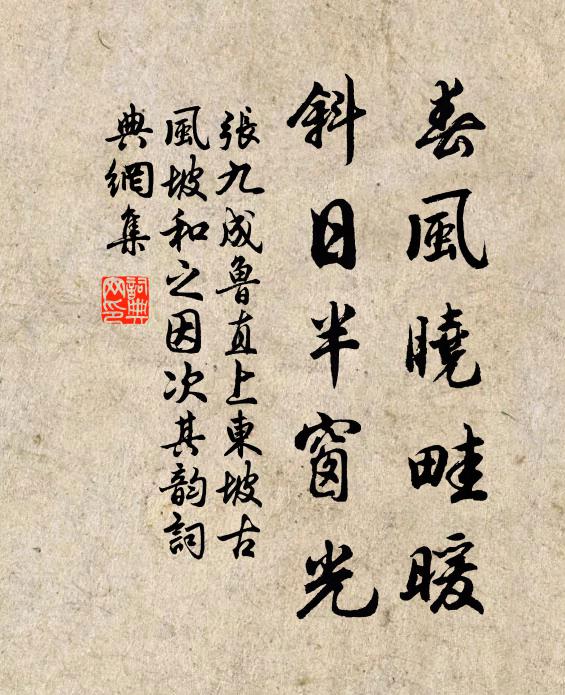 春風曉畦暖
斜日半窗光
張九成魯直上東坡古
風坡和之因次其韵詞
典網集
詞典
网印